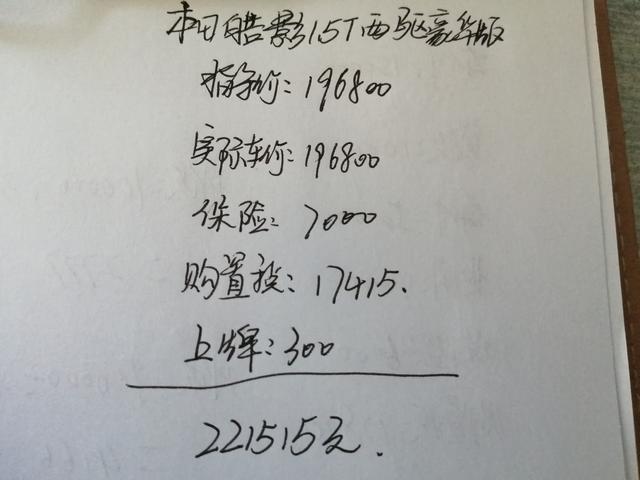 本田皓影1.5T两驱豪华版
指导价：196800
实际车价：196800
保险：7000
购置税：17415.
上牌：300
221515元.